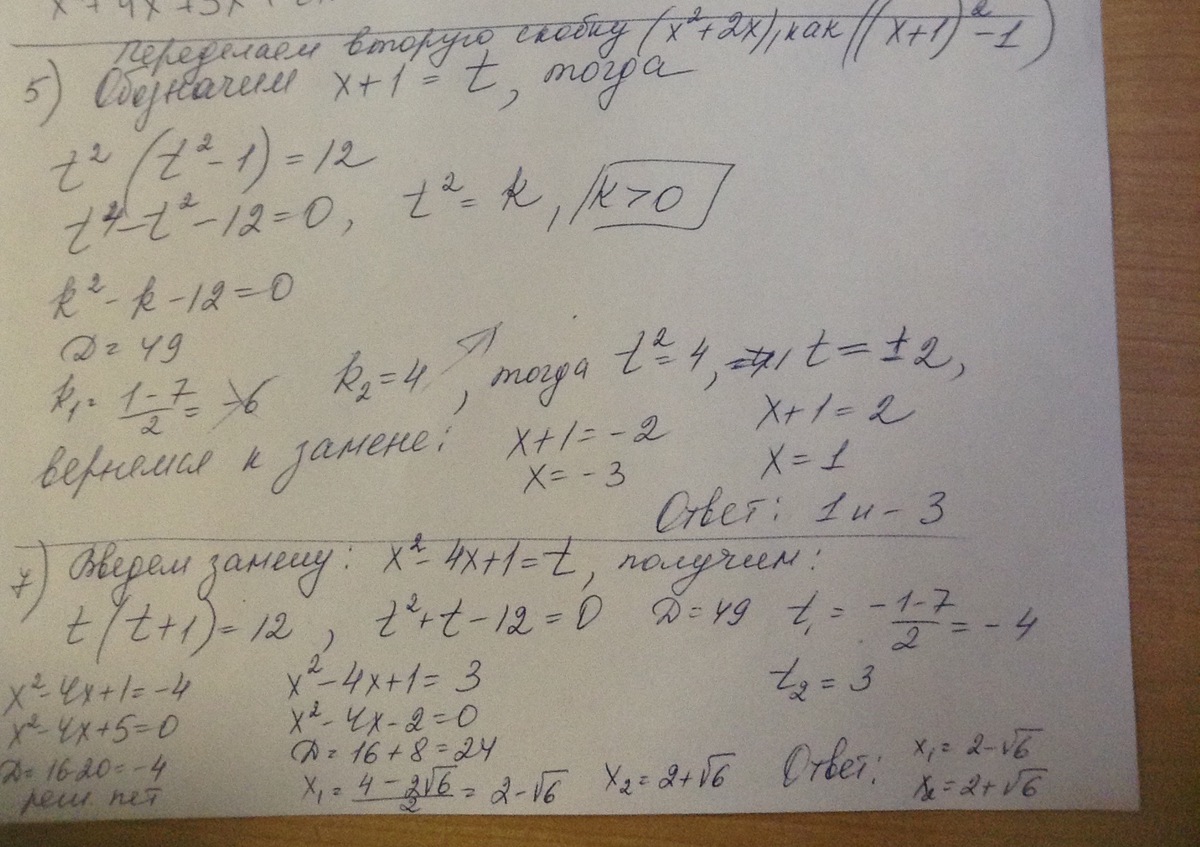 Переделаем вторую скобку (x²+2x), как ((x+1)²-1)
5) Обозначим x+1 = t, тогда
t² (t²-1) = 12
t⁴-t²-12=0, t² = k, k>0
k²-k-12=0
D=49
k₁= (1-7)/2 = -6 k₂=4, тогда t²=4, t=±2,
вернемся к замене: x+1=-2 x+1=2
x=-3 x=1
Ответ: 1 и -3
7) Введем замену: x²-4x+1=t, получим:
t(t+1)=12, t²+t-12=0 D=49 t₁= (-1-7)/2 = -4
x²-4x+1=-4 x²-4x+1=3 t₂=3
x²-4x+5=0 x²-4x-2=0
D=16-20=-4 D=16+8=24
реш. нет x₁= (4-2√6)/2 = 2-√6 x₂=2+√6 Ответ: x₁=2-√6
x₂=2+√6